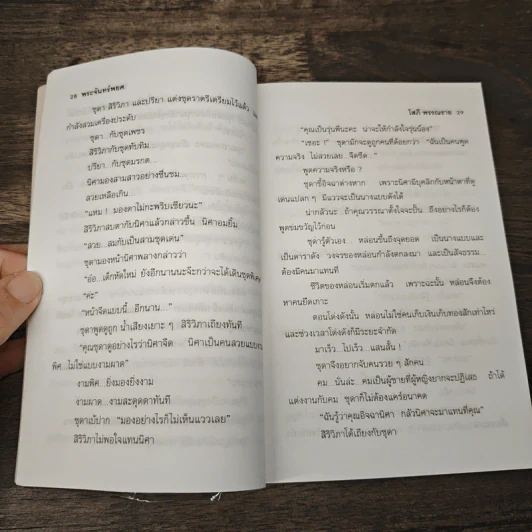 28 พระจันทร์พยศ
ชุดา สิริวิภา และปริยา แต่งชุดราตรีเตรียมไว้แล้ว
กำลังสวมเครื่องประดับ
ชุดา..กับชุดเพชร
สิริวิภากับชุดทับทิม
ปริยา..กับชุดมรกต...
นิศามองสามสาวอย่างชื่นชม...
สวยเหลือเกิน...
"แหม ! มองตาไม่กะพริบเชียวนะ"
สิริวิภาสบตากับนิศาแล้วกล่าวขึ้น นิศาอมยิ้ม
"สวย..สมกับเป็นสามชุดเด่น"
ชุดามองหน้านิศาพลางกล่าวว่า
"อ๋อ...เด็กหัดใหม่ ยังอีกนานนะจ๊ะกว่าจะได้เดินชุดพิเศษ
"ค่ะ"
"หน้าจืดแบบนี้...อีกนาน..."
ชุดาพูดดูถูก น้ำเสียงเยาะ ๆ สิริวิภาเถียงทันที
"คุณชุดาดูอย่างไรว่านิศาจืด นิศาเป็นคนสวยแบบงาม
พิศ...ไม่ใช่แบบงามผาด"
งามพิศ...ยิ่งมองยิ่งงาม
งามผาด...งามสะดุดตาทันที
ชุดาเบ้ปาก "มองอย่างไรก็ไม่เห็นแววเลย"
สิริวิภาไม่พอใจแทนนิศา
โสภี พรรณราย 29
"คุณเป็นรุ่นพี่นะคะ น่าจะให้กำลังใจรุ่นน้อง"
"เชอะ !" ชุดามักจะดูถูกคนที่ด้อยกว่า "ฉันเป็นคนพูด
ความจริง ไม่สวยเลย..จืดชืด..."
พูดความจริงหรือ ?
ชุดาขี้อิจฉาต่างหาก เพราะนิศามีบุคลิกกับหน้าตาที่ดู
เด่นแปลก ๆ มีแววจะเป็นนางแบบดังได้
น่ากลัวนะ..ถ้าคุณวรรณาตั้งใจจะปั้น ถึงอย่างไรก็ต้อง
พูดข่มขวัญไว้ก่อน
ชุดารู้ตัวเอง..หล่อนขึ้นถึงจุดยอด เป็นนางแบบและ
เป็นดาราดัง วงจรของหล่อนกำลังตกลงมา และเป็นสัจธรรม...
ต้องมีคนมาแทนที่
ชีวิตของหล่อนเริ่มตกแล้ว เพราะฉะนั้น หล่อนจึงต้อง
หาคนยึดเกาะ
ตอนโด่งดังนั้น หล่อนไม่ใช่คนเก็บเงินเก็บทองสักเท่าไหร่
และช่วงเวลาโด่งดังก็มีระยะจำกัด
มาเร็ว...ไปเร็ว...แสนสั้น !
ชุดาจึงอยากจับคนรวย ๆ สักคน
คม..นั่นล่ะ คมเป็นผู้ชายที่ผู้หญิงยากจะปฏิเสธ ถ้าได้
แต่งงานกับคม ชุดาก็ไม่ต้องแคร์อนาคต
"ฉันรู้ว่าคุณอิจฉานิศา กลัวนิศาจะมาแทนที่คุณ"
สิริวิภาโต้เถียงกับชุดา